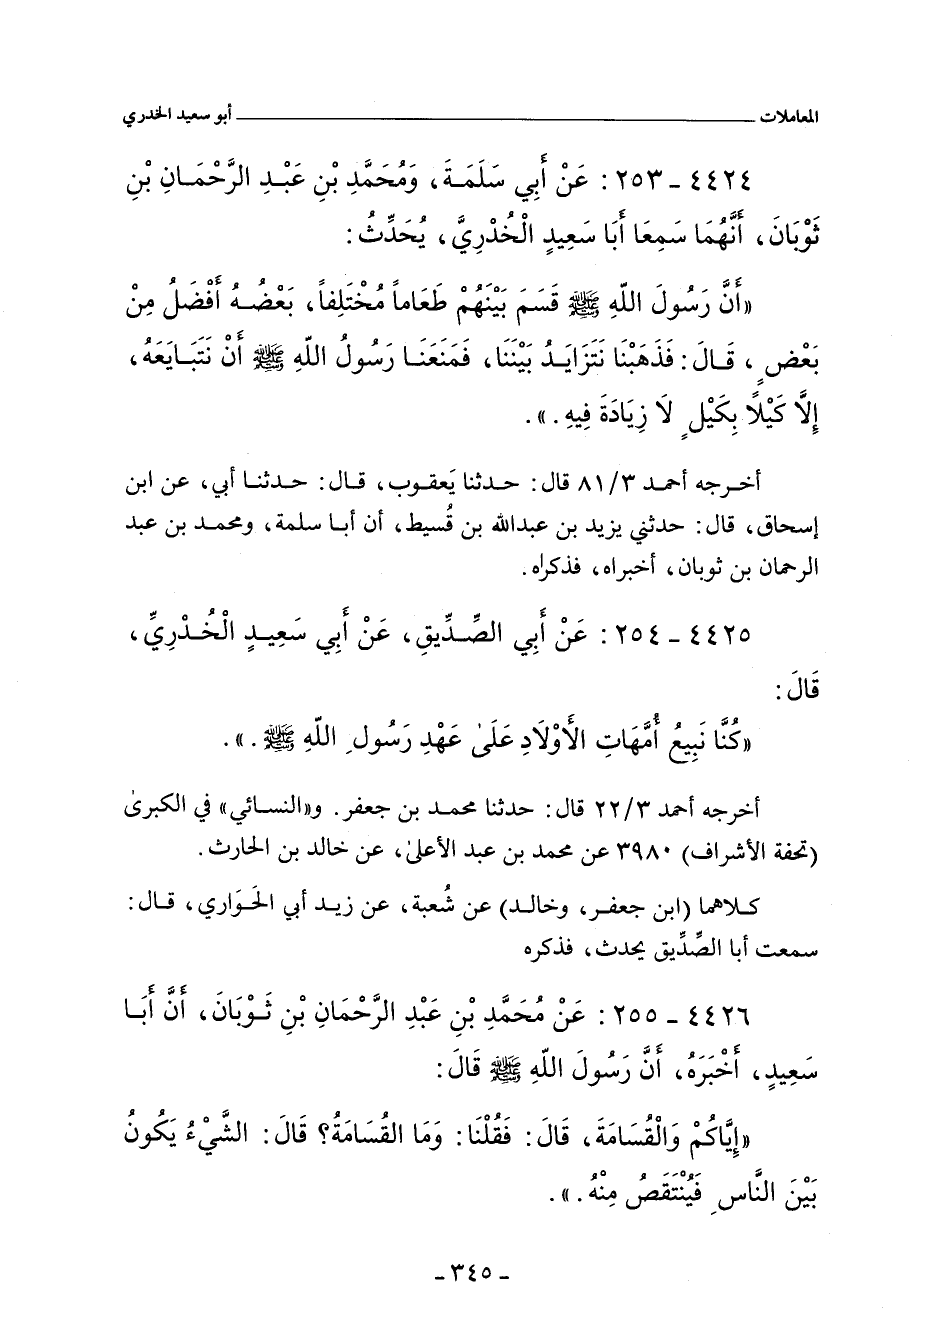 المعاملات ـــــــــــ أبو سعيد الخدري
٤٤٢٤ ـ ٢٥٣ : عَنْ أَبِي سَلَمَةَ، وَمُحَمَّدِ بْنِ عَبْدِ الرَّحْمَانِ بْنِ
ثَوْبَانَ، أَنَّهُمَا سَمِعَا أَبَا سَعِيدٍ الْخُدْرِيَّ، يُحَدِّثُ :
«أَنَّ رَسُولَ اللهِ ﷺ قَسَمَ بَيْنَهُمْ طَعَاماً مُخْتَلِفاً، بَعْضُهُ أَفْضَلُ مِنْ
بَعْضٍ، قَالَ : فَذَهَبْنَا نَتَزَايَدُ بَيْنَنَا، فَمَنَعَنَا رَسُولُ اللهِ ﷺ أَنْ نَتَبَايَعَهُ،
إِلَّا كَيْلًا بِكَيْلٍ لَا زِيَادَةَ فِيهِ . ».
أخرجه أحمد ٨١/٣ قال : حدثنا يَعقوب، قال : حدثنا أبي، عن ابن
إسحاق، قال : حدثني يزيد بن عبدالله بن قُسيط، أن أبا سلمة، ومحمد بن عبد
الرحمان بن ثوبان، أخبراه، فذكراه.
٤٤٢٥ ـ ٢٥٤ : عَنْ أَبِي الصِّدِّيقِ، عَنْ أَبِي سَعِيدٍ الْخُدْرِيِّ،
قَالَ :
«كُنَّا نَبِيعُ أُمَّهَاتِ الأَوْلَادِ عَلَىٰ عَهْدِ رَسُولِ اللهِ ﷺ . ».
أخرجه أحمد ٢٢/٣ قال : حدثنا محمد بن جعفر. و«النسائي» في الكبرىٰ
(تحفة الأشراف) ٣٩٨٠ عن محمد بن عبد الأعلىٰ، عن خالد بن الحارث.
كلاهما (ابن جعفر، وخالد) عن شُعبة، عن زيد أبي الحَوَاري، قال :
سمعت أبا الصِّدِّيق يحدث، فذكره
٤٤٢٦ ـ ٢٥٥ : عَنْ مُحَمَّدِ بْنِ عَبْدِ الرَّحْمَانِ بْنِ ثَوْبَانَ، أَنَّ أَبَا
سَعِيدٍ، أَخْبَرَهُ، أَنَّ رَسُولَ اللهِ ﷺ قَالَ :
«إِيَّاكُمْ وَالْقُسَامَةَ، قَالَ : فَقُلْنَا : وَمَا القُسَامَةُ؟ قَالَ : الشَّيْءُ يَكُونُ
بَيْنَ النَّاسِ فَيُنْتَقَصُ مِنْهُ . ».
ـ ٣٤٥ ـ